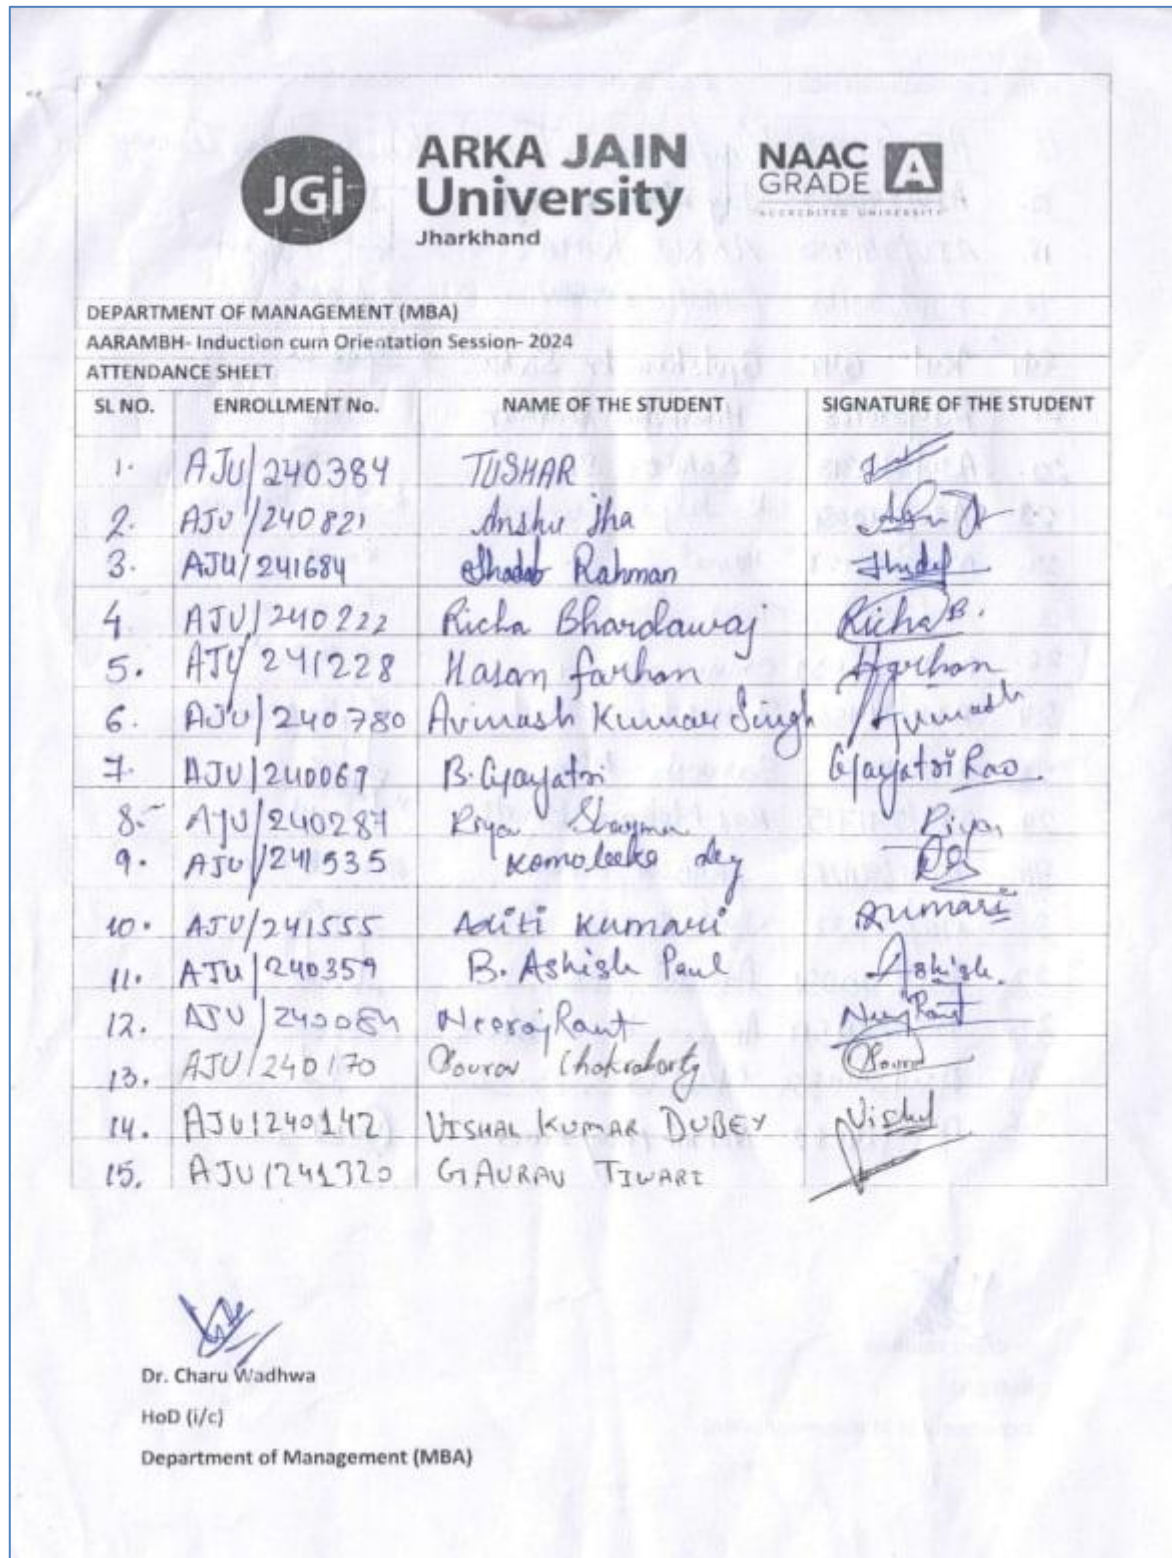 JGi
ARKA JAIN
University
Jharkhand
NAAC
GRADE A
ACCREDITED UNIVERSITY
DEPARTMENT OF MANAGEMENT (MBA)
AARAMBH- Induction cum Orientation Session- 2024
ATTENDANCE SHEET
SL NO. ENROLLMENT No. NAME OF THE STUDENT SIGNATURE OF THE STUDENT
1. AJU/240384 TUSHAR
2. AJU/240821 Anshu Jha
3. AJU/241684 Shadab Rahman
4. AJU/240222 Richa Bhardawaj Richa B.
5. AJU/241228 Hasan farhan Hfarhan
6. AJU/240780 Avinash Kumar Singh Avinash
7. AJU/240067 B. Gayatri Gayatri Rao
8. AJU/240287 Riya Sharma Riya
9. AJU/241535 Komoleeka dey
10. AJU/241555 Aditi Kumari Kumari
11. AJU/240359 B. Ashish Paul Ashish
12. AJU/240084 Neeraj Raut Neeraj Raut
13. AJU/240170 Sourav Chakraborty Sourav
14. AJU/240142 VISHAL KUMAR DUBEY Vishal
15. AJU/241320 GAURAV TIWARI
Dr. Charu Wadhwa
HoD (i/c)
Department of Management (MBA)